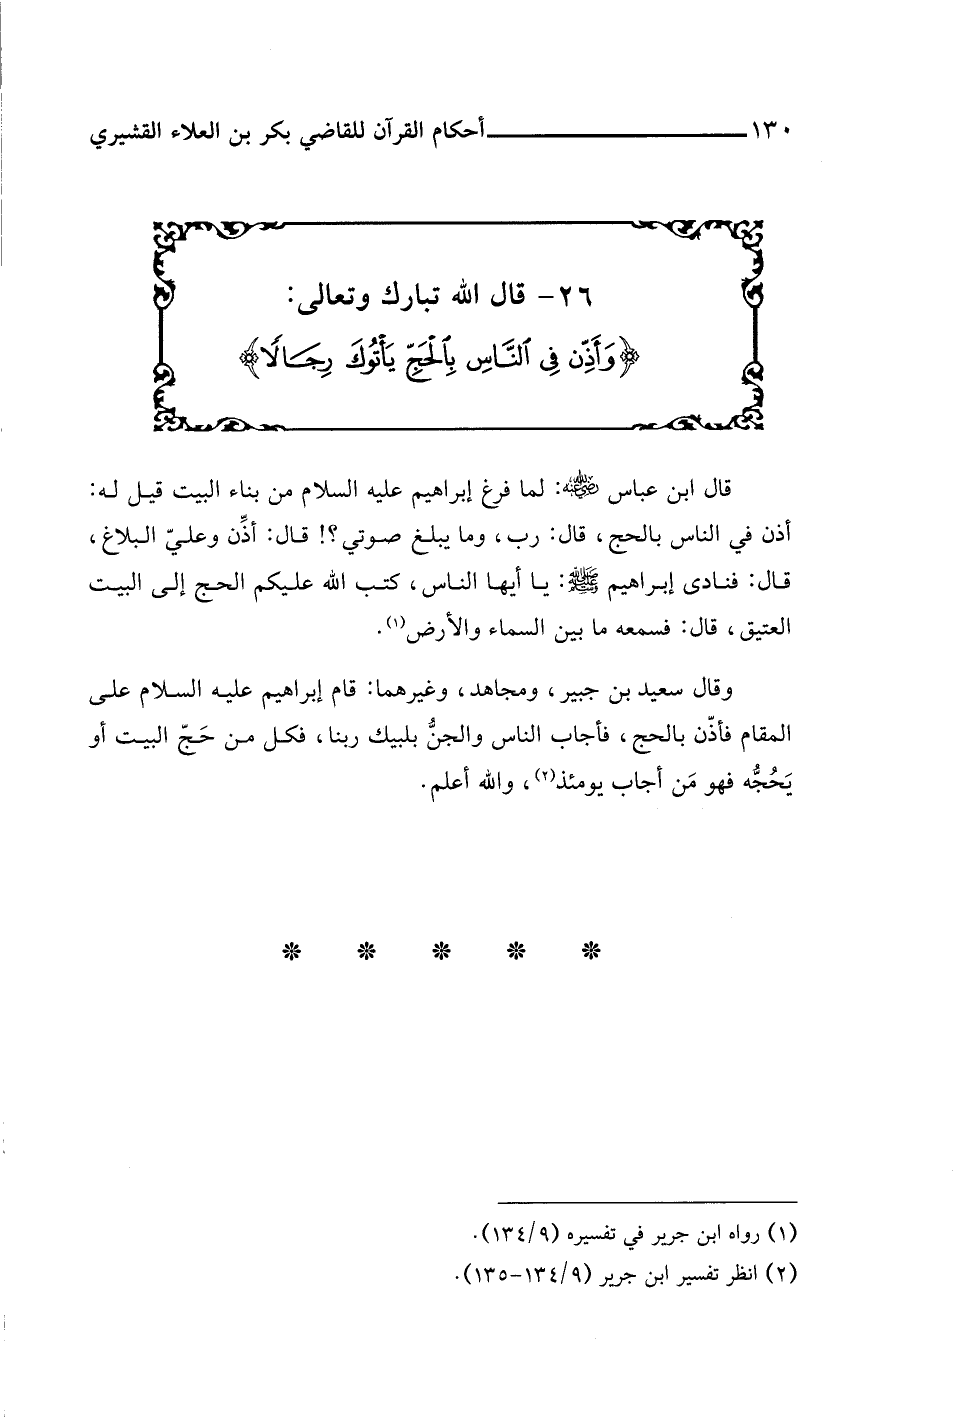 ١٣٠ أحكام القرآن للقاضي بكر بن العلاء القشيري
٢٦- قال الله تبارك وتعالى:
﴿وَأَذِّن فِي ٱلنَّاسِ بِٱلْحَجِّ يَأْتُوكَ رِجَالًا﴾
قال ابن عباس رضي الله عنه: لما فرغ إبراهيم عليه السلام من بناء البيت قيل له:
أذن في الناس بالحج، قال: رب، وما يبلغ صوتي؟! قال: أذِّن وعليّ البلاغ،
قال: فنادى إبراهيم ﷺ: يا أيها الناس، كتب الله عليكم الحج إلى البيت
العتيق، قال: فسمعه ما بين السماء والأرض(١).
وقال سعيد بن جبير، ومجاهد، وغيرهما: قام إبراهيم عليه السلام على
المقام فأذّن بالحج، فأجاب الناس والجنُّ بلبيك ربنا، فكل من حَجّ البيت أو
يَحُجُّه فهو مَن أجاب يومئذ(٢)، والله أعلم.
(١) رواه ابن جرير في تفسيره (٩/١٣٤).
(٢) انظر تفسير ابن جرير (٩/١٣٤-١٣٥).